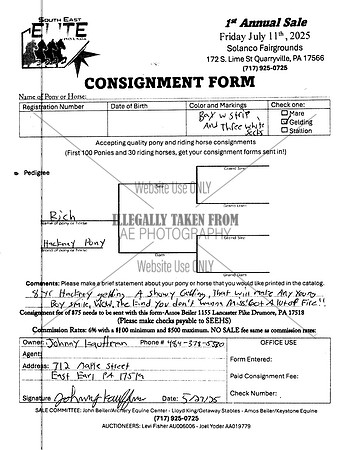 South East
ELITE
1st Annual Sale
Friday July 11th, 2025
Solanco Fairgrounds
172 S. Lime St Quarryville, PA 17566
(717) 925-0725
CONSIGNMENT FORM
Name of Pony or Horse:
Registration Number Date of Birth Color and Markings Check one:
Bay w strip, And Three white socks
Mare
Gelding
Stallion
Accepting quality pony and riding horse consignments
(First 100 Ponies and 30 riding horses, get your consignment forms sent in!)
Pedigree
Grand Sire
Website Use ONLY
Sire
Grand Dam
Rich
Name of pony or horse
ILLEGALLY TAKEN FROM
AE PHOTOGRAPHY
Hackney Pony
Breed of pony or horse
Grand Sire
Website Use ONLY
Dam
Grand Dam
Comments: Please make a brief statement about your pony or horse that you would like printed in the catalog.
8 yr Hackney gelding A Showy Gelding, That will make Any Young
Boy smile, WOW, The kind You don't wanna Miss! Got A lot of Fire!!
Consignment fee of $75 needs to be sent with this form-Amos Beiler 1155 Lancaster Pike Drumore, PA 17518
(Please make checks payable to SEEHS)
Commission Rates: 6% with a $100 minimum and $500 maximum. NO SALE fee same as commission rates:
Owner: Johnny Kauffman Phone # 484-378-5580
OFFICE USE
Agent:
Form Entered:
Address: 712 Maple Street
East Earl PA 17519
Paid Consignment Fee:
Check Number:
Signature Johnny Kauffman Date: 5/27/25
SALE COMMITTEE: John Beiler/Archery Equine Center - Lloyd King/Getaway Stables - Amos Beiler/Keystone Equine
(717) 925-0725
AUCTIONEERS: Levi Fisher AU006006 - Joel Yoder AA019779